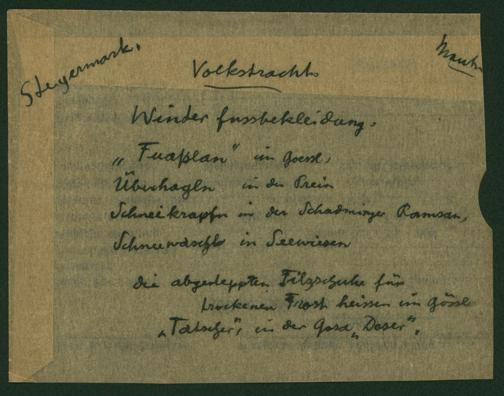 Steyermark.
Volkstracht
Winterfussbekleidung.
„Fuaßlan" im Goessl,
Überhagln in der Prein
Schneekrapfn in der Schadminger Ramsau,
in Seewiesen
die abgesteppten Filzschuhe für
trockenen Frost heissen im Gössl
„Tatscher", in der Gosa „Doser".